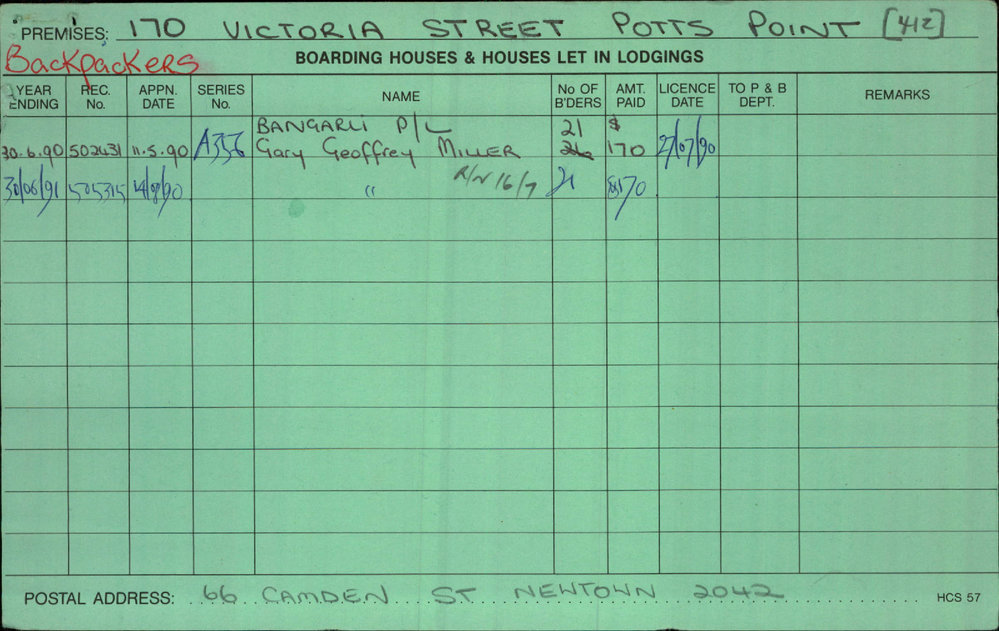 PREMISES: 170 VICTORIA STREET POTTS POINT [412]
Backpackers
BOARDING HOUSES & HOUSES LET IN LODGINGS
YEAR ENDING REC. No. APPN. DATE SERIES No. NAME No OF B'DERS AMT. PAID LICENCE DATE TO P & B DEPT. REMARKS
BANGARLI P/L 21 $
30.6.90 502431 11.5.90 A356 Gary Geoffrey MILLER 170 27/07/90
30/06/91 505315 14/08/90 " R/N 16/7 21 $170
POSTAL ADDRESS: 66 CAMDEN ST NEWTOWN 2042 HCS 57